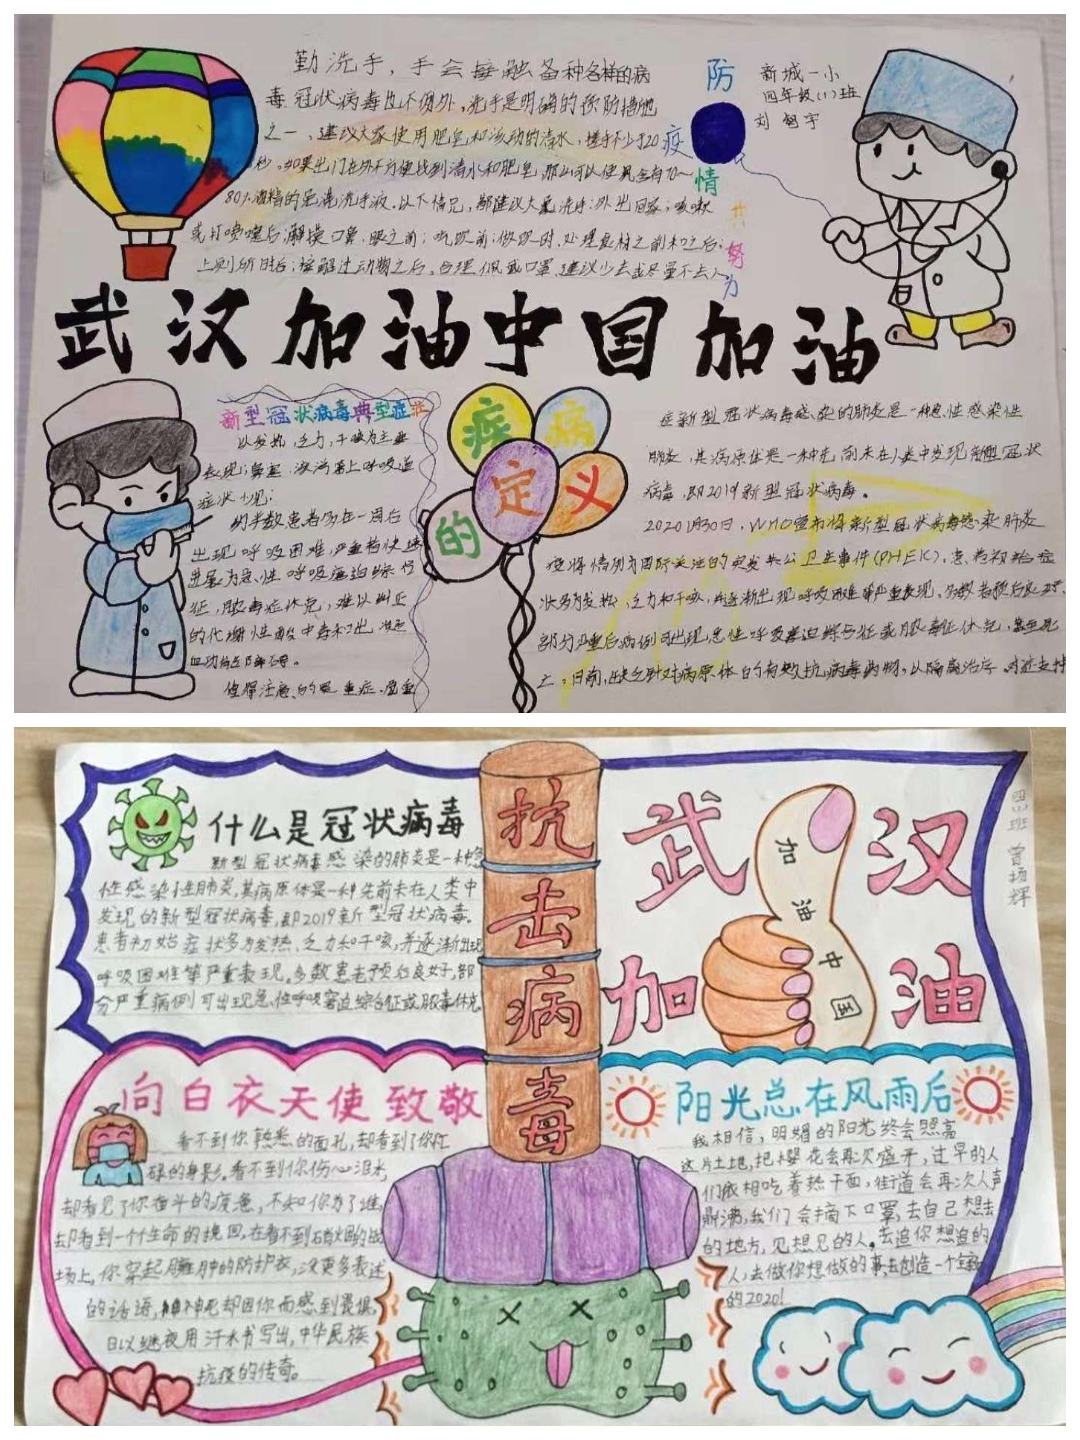 勤洗手，手会接触各种各样的病
毒冠状病毒也不例外，洗手是明确的预防措施
之一，建议大家使用肥皂和流动的清水，搓手不少于20
秒。如果出门在外不方便找到清水和肥皂
80%酒精的免洗洗手液。以下情况，都建议大家洗手：外出回家；咳嗽
或打喷嚏后；
上厕所后；接触过动物之后，合理佩戴口罩，建议少去或尽量不去人
防
疫
情
共
努
力
新城一小
四年级(1)班
刘
宇
武汉加油中国加油
新型冠状病毒典型症
以发热，乏力，干咳为主要
表现；鼻塞，流涕等上呼吸道
症状少见；
约半数患者多在一周后
出现呼吸困难，严重者快速
进展为急性呼吸窘迫综合
征，脓毒症休克，难以纠正
的代谢性酸中毒和出凝
血功能障碍。
值得注意的是重症、危重
疾病
定义
的
症新型冠状病毒感染的肺炎是一种急性感染性
肺炎，其病原体是一种先前未在人类中发现的新型冠状
病毒，即2019新型冠状病毒。
2020 1月30日，WHO宣布将新型冠状病毒感染肺炎
疫情情列为国际关注的突发公共卫生事件(PHEIC)，患者初始症
状多为发热、乏力和干咳，并逐渐出现呼吸困难等严重表现。多数患者预后良好，
部分严重病例可出现急性呼吸窘迫综合征或脓毒症休克，甚至死
亡。目前，缺乏针对病原体的有效抗病毒药物，以隔离治疗、对症支持
什么是冠状病毒
新型冠状病毒感染的肺炎是一种急
性感染性肺炎，其病原体是一种先前未在人类中
发现的新型冠状病毒，即2019新型冠状病毒。
患者初始症状多为发热、乏力和干咳，并逐渐出现
呼吸困难等严重表现。多数患者预后良好，部
分严重病例可出现急性呼吸窘迫综合征或脓毒休克
抗
击
病
毒
武汉
加油
加油中国
四班 曾扬辉
向白衣天使致敬
看不到你熟悉的面孔，却看到了你忙
碌的身影。看不到你伤心泪水，
却看见了你奋斗的疲惫，不知你为了谁，
却看到一个个生命的挽回，在看不到硝烟的战
场上，你穿起臃肿的防护衣，没更多表述
的话语，神死却因你而感到畏惧，
日以继夜用汗水书写出，中华民族
抗疫的传奇。
阳光总在风雨后
我相信，明媚的阳光终会照亮
这片土地，把樱花会再次盛开，过早的人
们依相吃着热干面，街道会再次人声
鼎沸，我们会摘下口罩，去自己想去
的地方，见想见的人。去追你想追的
人，去做你想做的事，去创造一个全新
的2020！